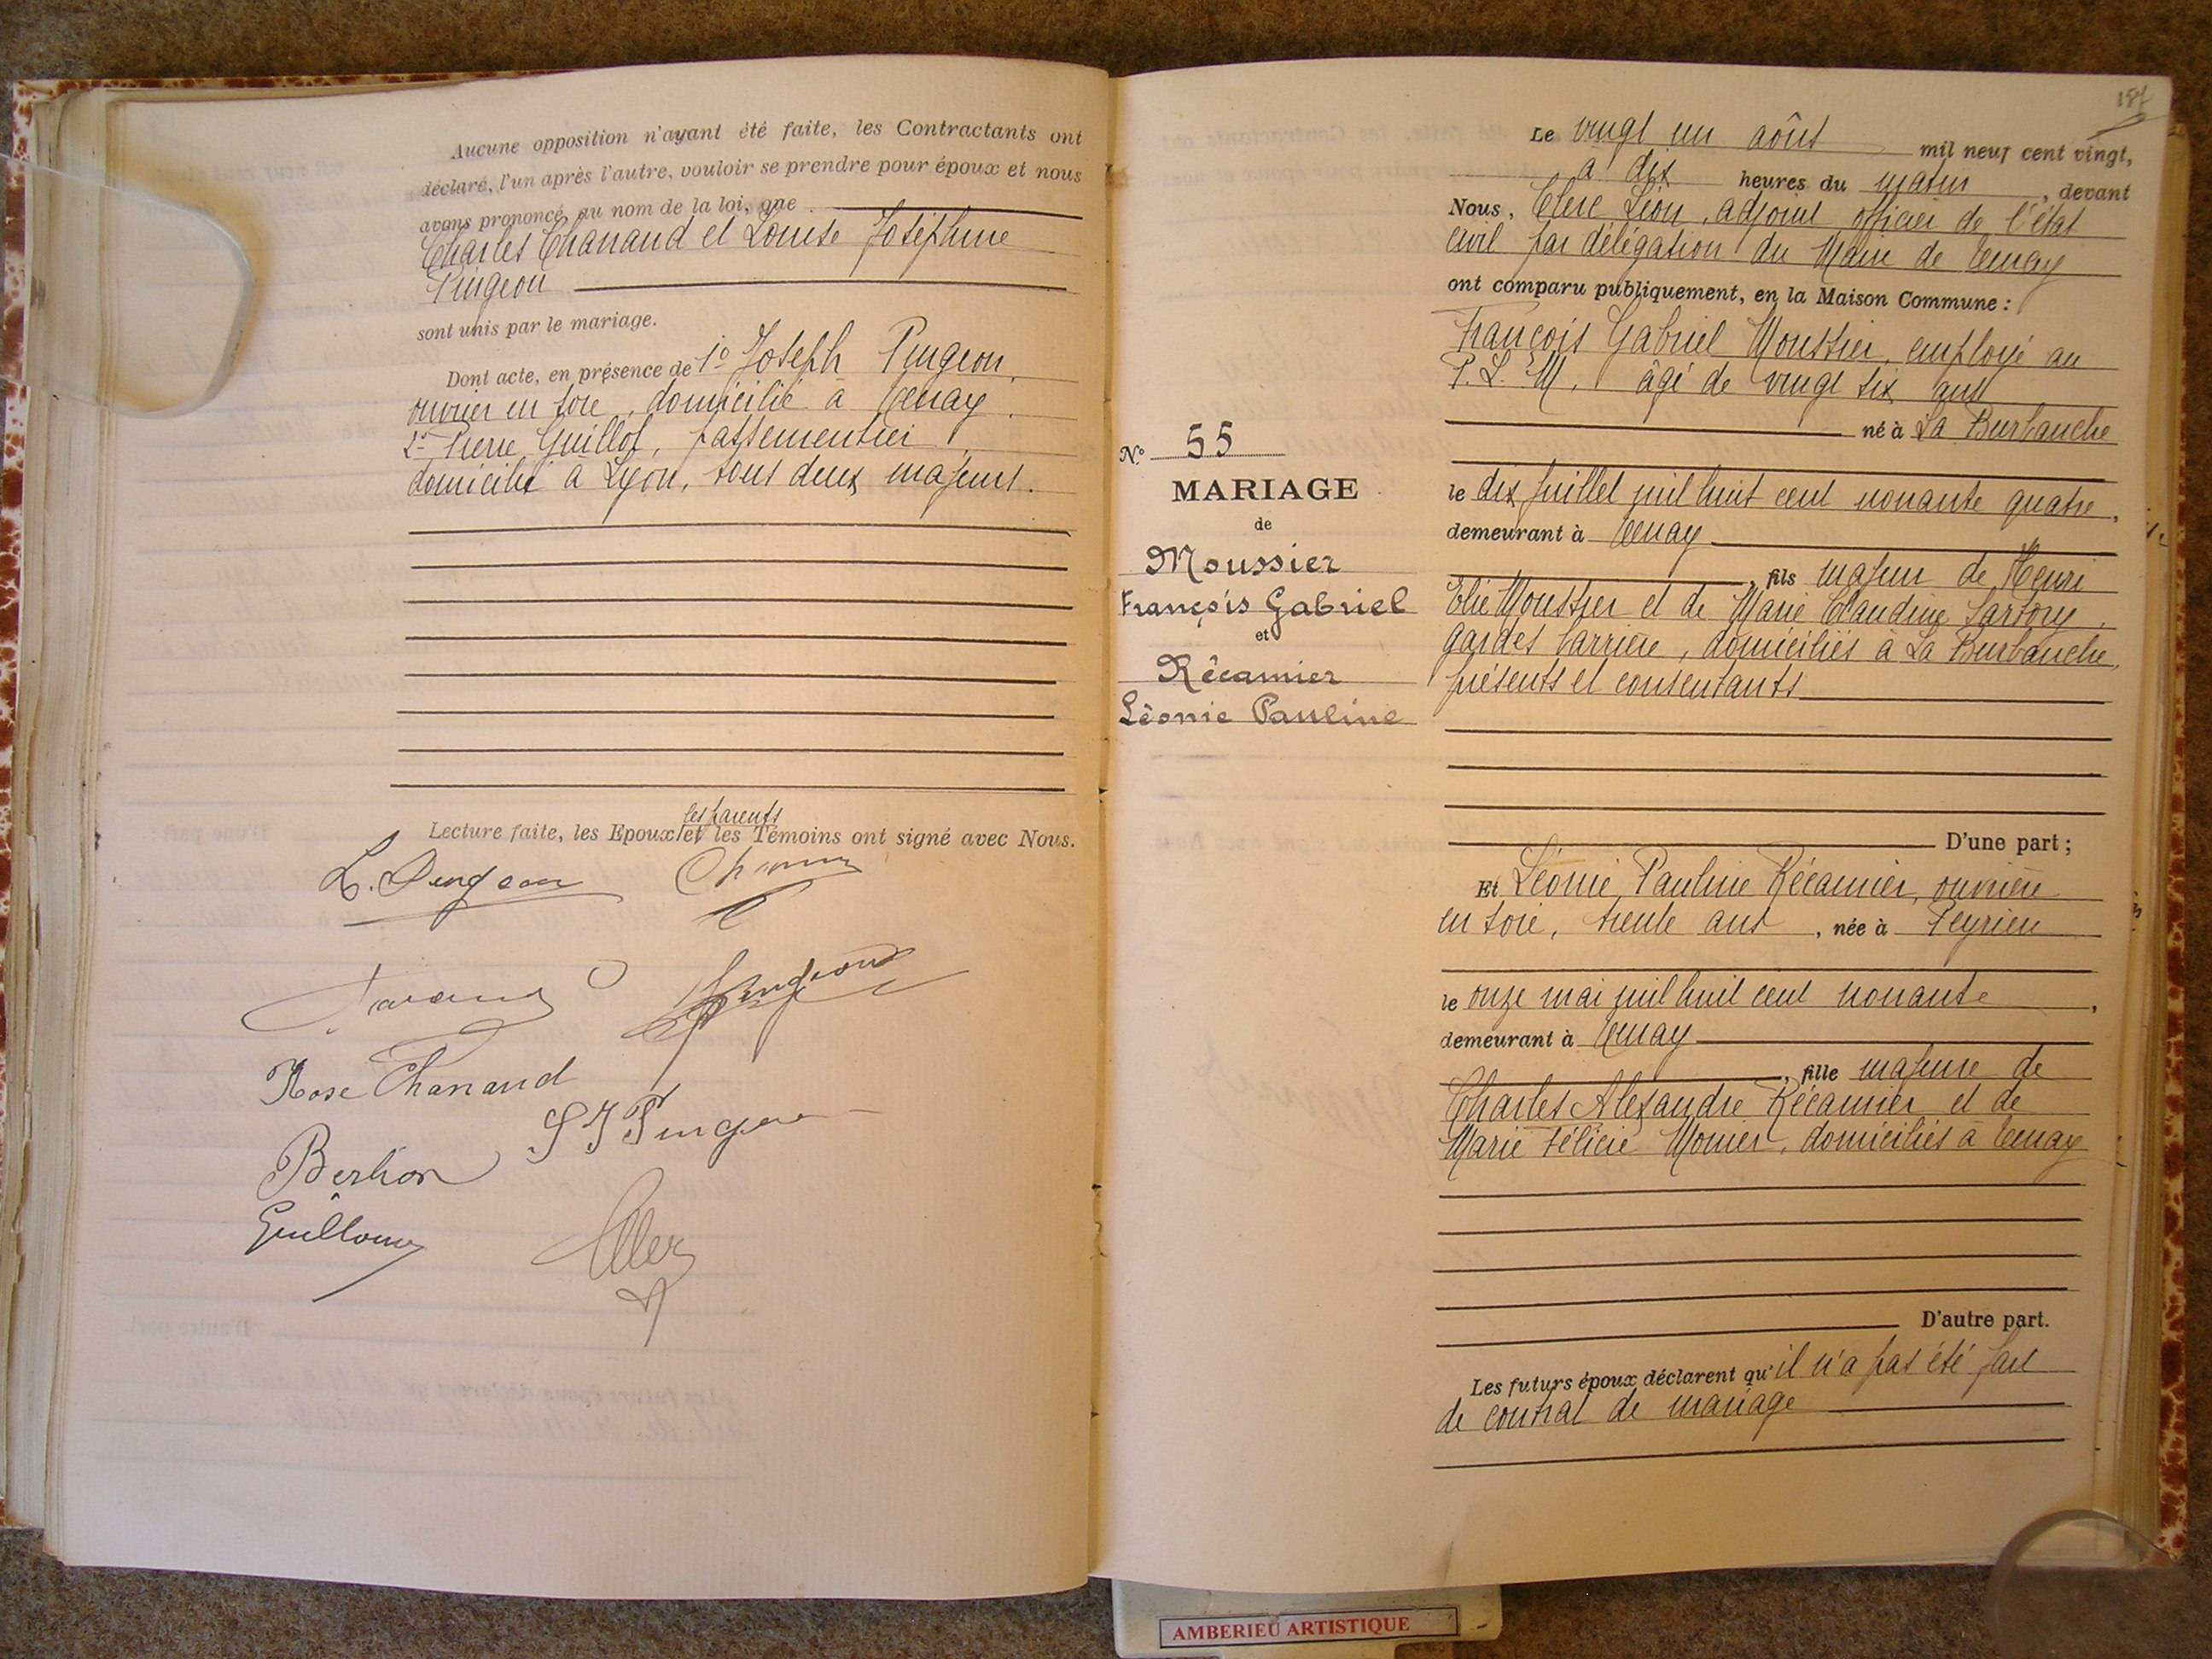 Aucune opposition n'ayant été faite, les Contractants ont
déclaré, l'un après l'autre, vouloir se prendre pour époux et nous
avons prononcé au nom de la loi, que
Charles Chanaud et Louise Joséphine
Pingeon
sont unis par le mariage.
Dont acte, en présence de 1º Joseph Pingeon,
ouvrier en soie, domicilié à Tenay.
2º Pierre Guillot, passementier,
domicilié à Lyon, tous deux majeurs.
les parents
Lecture faite, les Epoux et les Témoins ont signé avec Nous.
L. Pingeon
Pingeon
Rose Chanaud
S J Pingeon
Berlion
187
Le vingt un août mil neuf cent vingt,
à dix heures du matin, devant
Nous, Clerc Léon, adjoint officier de l'état
civil par délégation du Maire de Tenay
ont comparu publiquement, en la Maison Commune :
François Gabriel Moussier, employé au
P. L. M, âgé de vingt six ans
né à La Burbanche
le dix juillet mil huit cent nonante quatre,
demeurant à Tenay
, fils majeur de Henri
Elie Moussier et de Marie Claudine Sartory,
gardes barrière, domiciliés à La Burbanche,
présents et consentants
Nº 55
MARIAGE
de
Moussier
François Gabriel
et
Récamier
Léonie Pauline
D'une part ;
Et Léonie Pauline Récamier, ouvrière
en soie, trente ans, née à Peyrieu
le onze mai mil huit cent nonante,
demeurant à Tenay
, fille majeure de
Charles Alexandre Récamier et de
Marie Félicie Monier, domiciliés à Tenay
D'autre part.
Les futurs époux déclarent qu'il n'a pas été fait
de contrat de mariage
AMBERIEU ARTISTIQUE